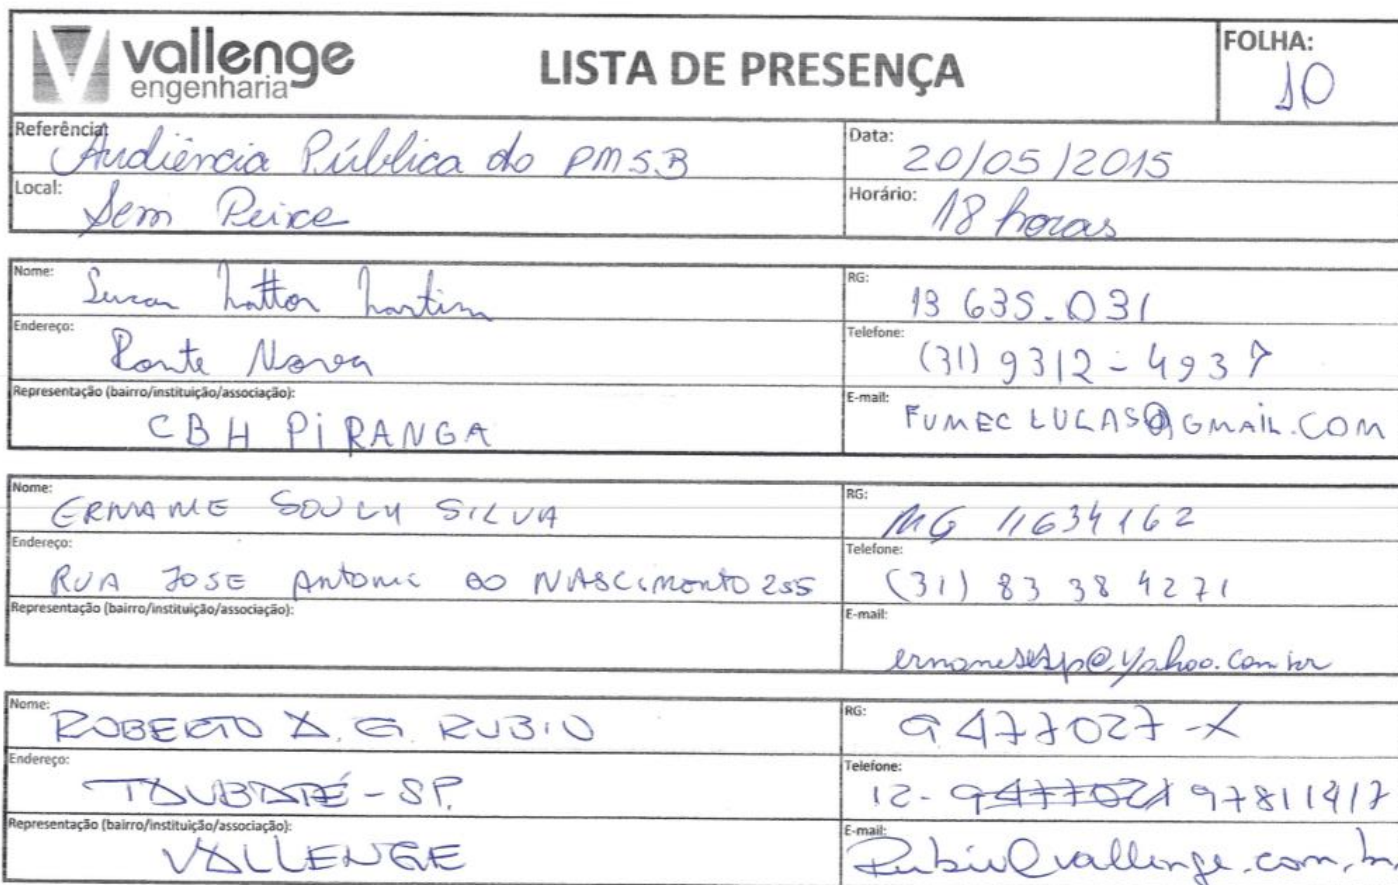 vallenge
engenharia
LISTA DE PRESENÇA
FOLHA:
10
Referência: Audiência Pública do PMSB
Data: 20/05/2015
Local: Sem Peixe
Horário: 18 horas
Nome:
RG: 13 635.031
Endereço: Ponte Nova
Telefone: (31) 9312-4937
Representação (bairro/instituição/associação): CBH PiRANGA
E-mail: FUMECLUCAS@GMAIL.COM
Nome: ERNANE SOUZA SILVA
RG: MG 11634162
Endereço: RUA JOSE Antonio DO NASCIMENTO 255
Telefone: (31) 83 38 4271
Representação (bairro/instituição/associação):
E-mail:
Nome: ROBERTO A. G. RUBIO
RG: 9477027-X
Endereço: TAUBATÉ-SP.
Telefone: 12- 9477027 97811417
Representação (bairro/instituição/associação): VALLENGE
E-mail: Rubio@vallenge.com.br